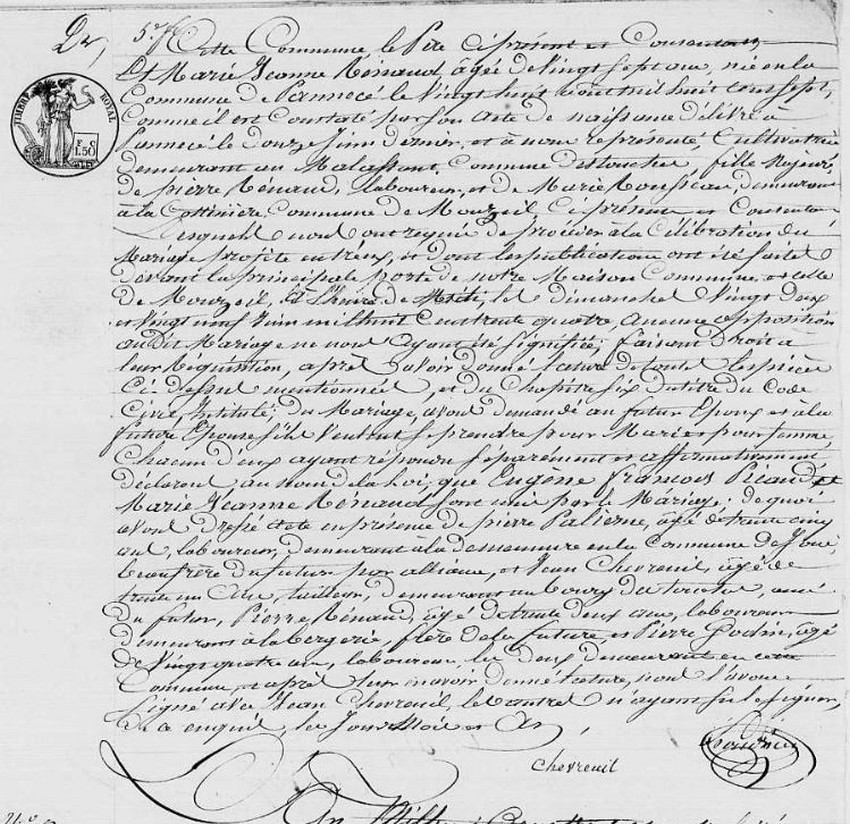 2e,
5e fet
Cette Commune le Père ci présent et Consentant
Et Marie Jeanne Rénaud, âgée de Vingt Sept ans, née en la
Commune de Pannecé le Vingt huit août mil huit cent sept,
Comme il est Constaté par Son acte de naissance délivré à
Pannecé le douze Juin dernier, et à nous représenté, Cultivatrice
demeurant au Malassant, Commune des touches fille Majeure
de pierre Rénaud, laboureur, et de Marie Rousseau, demeurant
à la Cottinière, Commune de Mouzeil Ci présents et Consentants
Lesquels nous ont requis de procéder à la Célébration du
Mariage projeté entr'eux, et dont les publications ont été faites
devant la principale porte de notre Maison Commune, et celle
de Mouzeil, à l'heure de Midi, les dimanches Vingt deux
et Vingt neuf Juin mil huit Cent trente quatre, Aucune opposition
au dit Mariage ne nous ayant été signifiée, faisant Droit à
leur Réquisition, après avoir donné lecture de toutes les pièces
Ci-dessus mentionnées, et du Chapitre Six du titre du Code
Civil, Intitulé; du Mariage, avons demandé au futur Epoux et à la
future Epouse s'ils veulent se prendre pour Mari et pour femme,
Chacun d'eux ayant répondu séparément et affirmativement
déclarons au nom de la Loi, que Eugène françois Picaud et
Marie Jeanne Rénaud sont unis par le Mariage; de quoi
avons dressé acte en présence de pierre Palierne, âgé de trente cinq
ans, laboureur, demeurant à la demeumure en la Commune de Joué,
beaufrère du futur par alliance, et Jean Chevreuil, âgé de
trente un Ans, tailleur, demeurant au bourg des touches, ami
du futur, Pierre Rénaud, âgé de trente deux ans, laboureur
demeurant à la bergerie, frère de la future et Pierre Godin, âgé
de Vingt quatre ans, laboureur, les deux demeurant en cette
Commune, et après leur en avoir donné lecture, nous l'avons
Signé avec Jean Chevreuil, les autres n'ayant su le signer,
de ce enquis, les Jour, Mois et An
Chevreuil
TIMBRE ROYAL
F. C
1.50